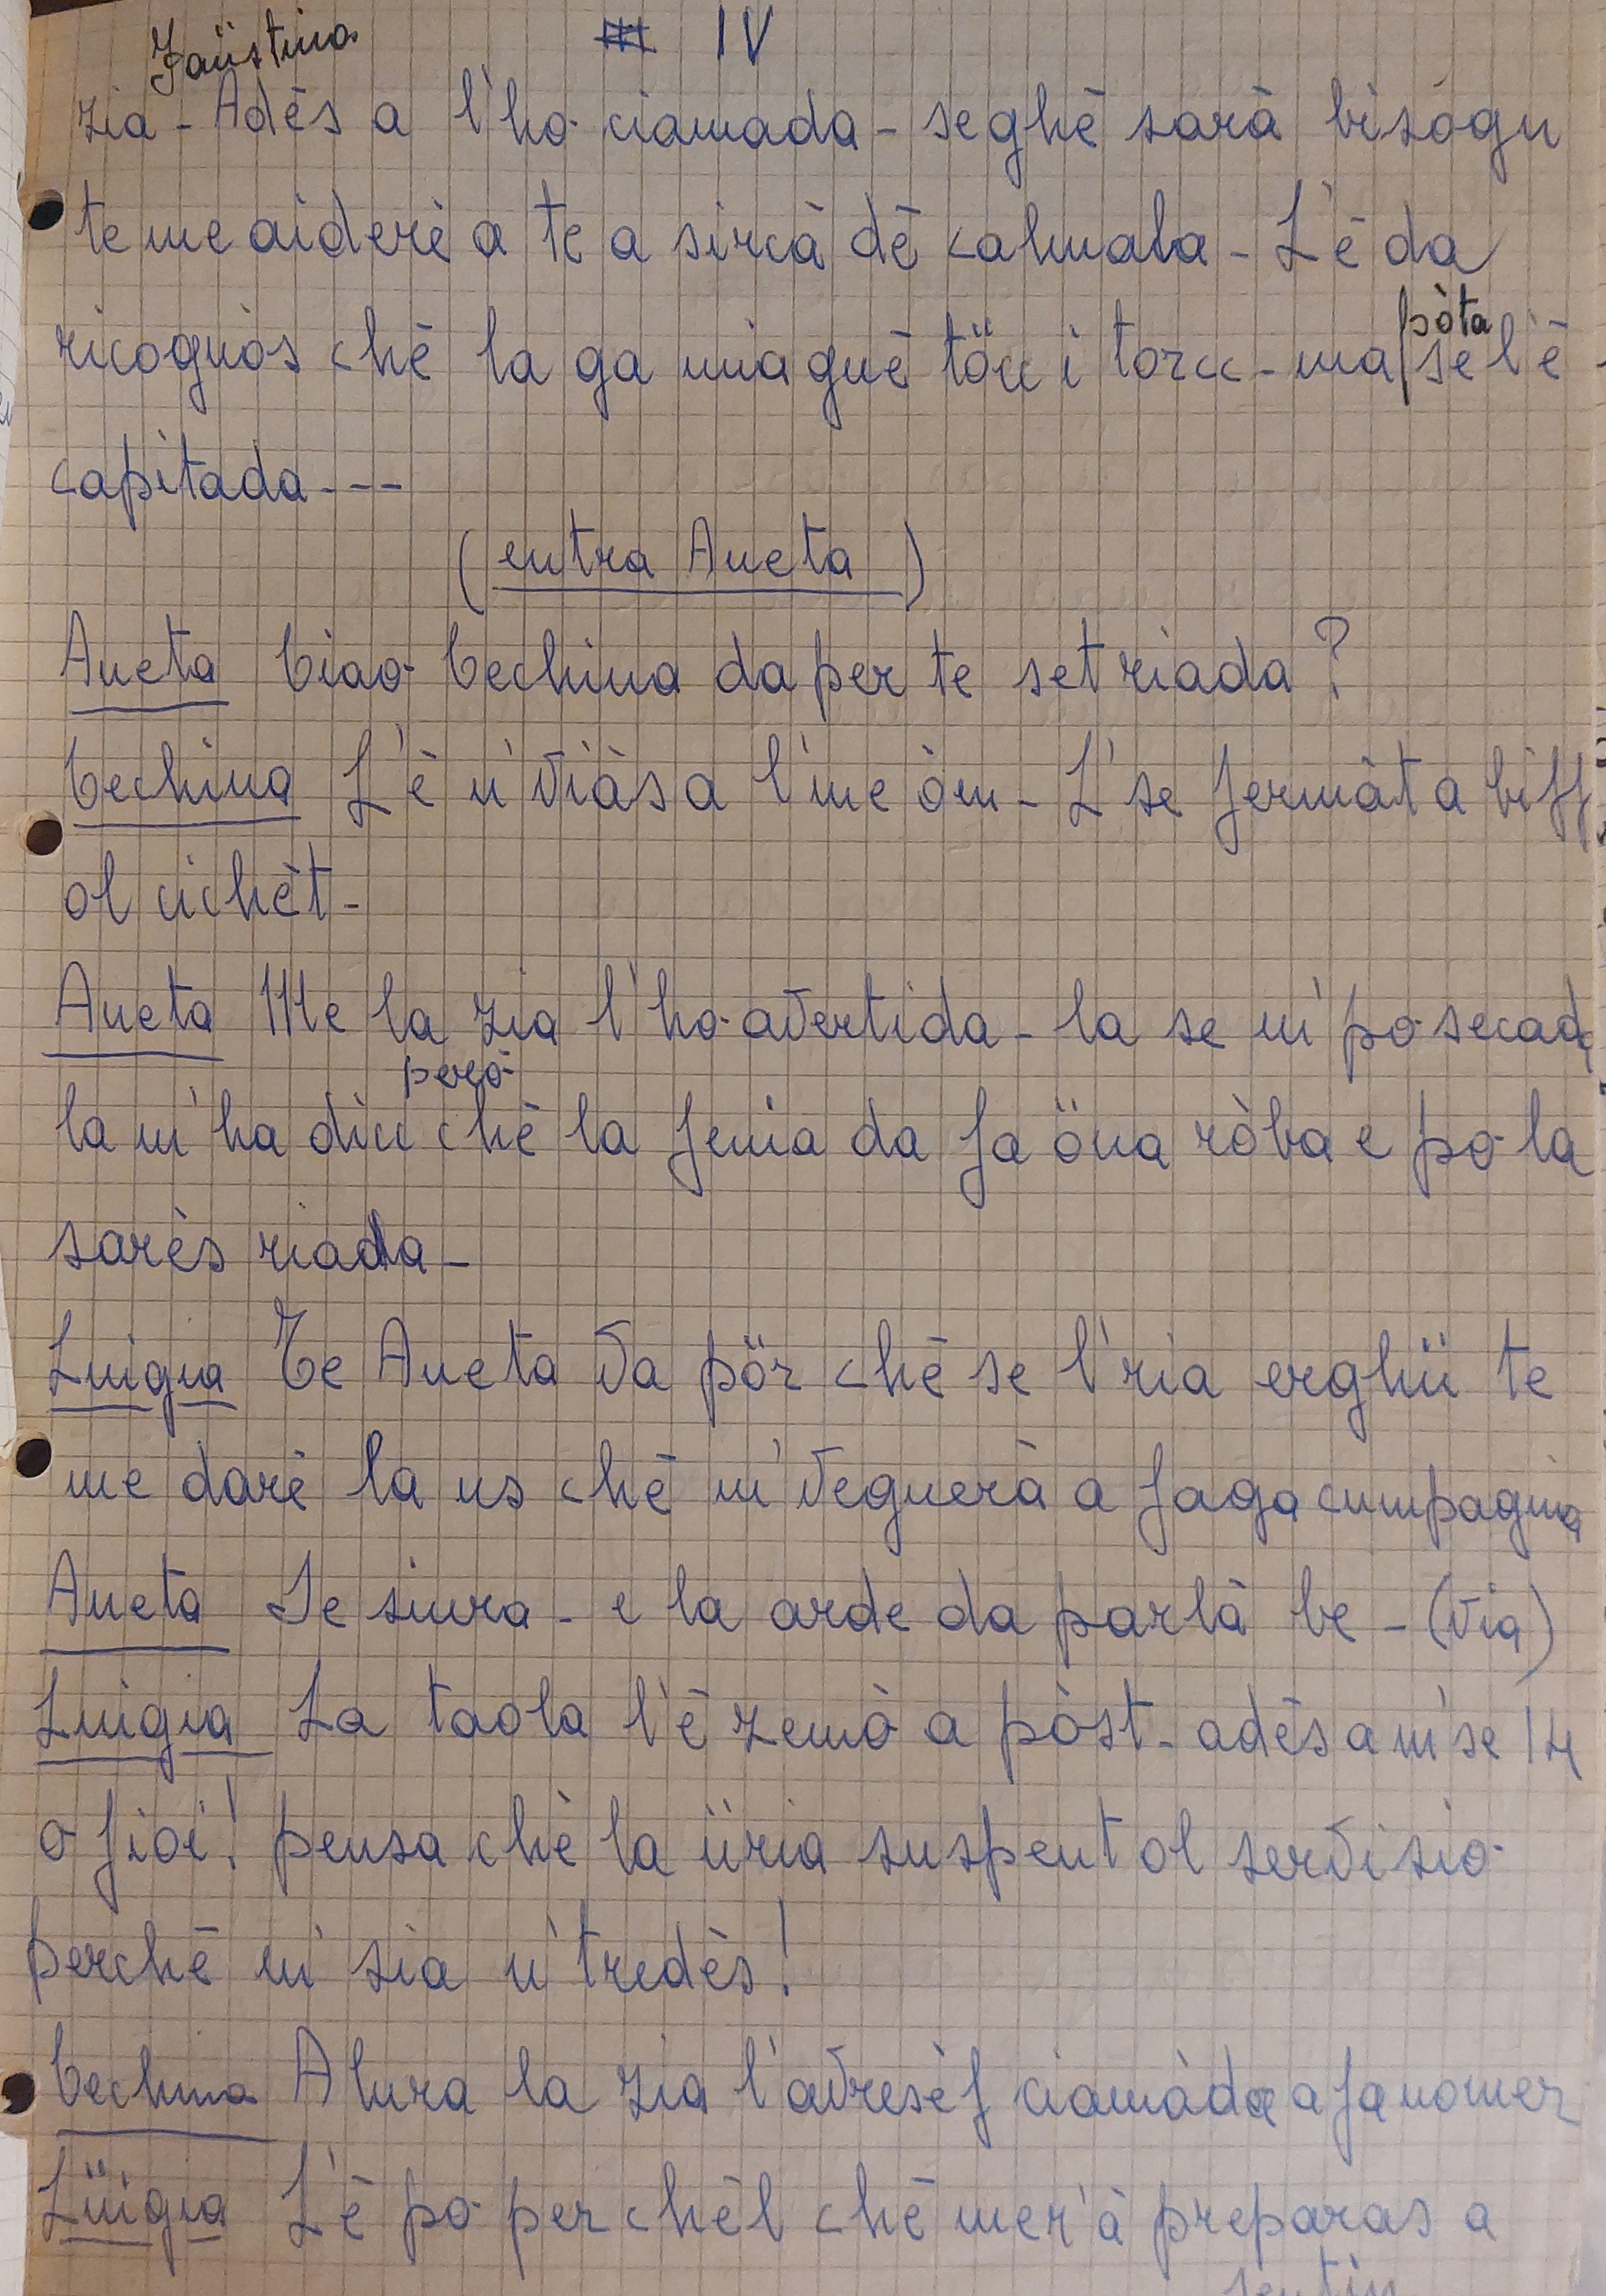 IV
Faüstina
zia - Adès a l'ho ciamada - seghè sarà bisògn
te me aiderè a te a sircà dè calmala - L'è da
ricognòs chè la ga mia gnè töcc i torcc - ma pòta se l'è
capitada ---
(entra Aneta)
Aneta Ciao Cechina da per te set riada?
Cechina L'è n' viàs a l' me òm - L' se fermàt a biff
ol cichèt -
Aneta Me la zia l'ho avertida - la se m' po secada
la m' ha dicc però chè la fenia da fa öna ròba e po la
sarès riada -
Luigia Te Aneta va pör chè se l' ria erghü te
me darè la us chè m' vegnerà a faga cumpagnia
Aneta Se siura - e la arde da parlà be - (via)
Luigia La taola l'è zemò a pòst - adès a m' se 14
o fioi! pensa chè la üria suspent ol servisio
perchè m' sia n' tredès!
Cechina Alura la zia l'avresèf ciamàda a fa nomer
Lüigia L'è po per chèl chè mer' à preparas a
sentin